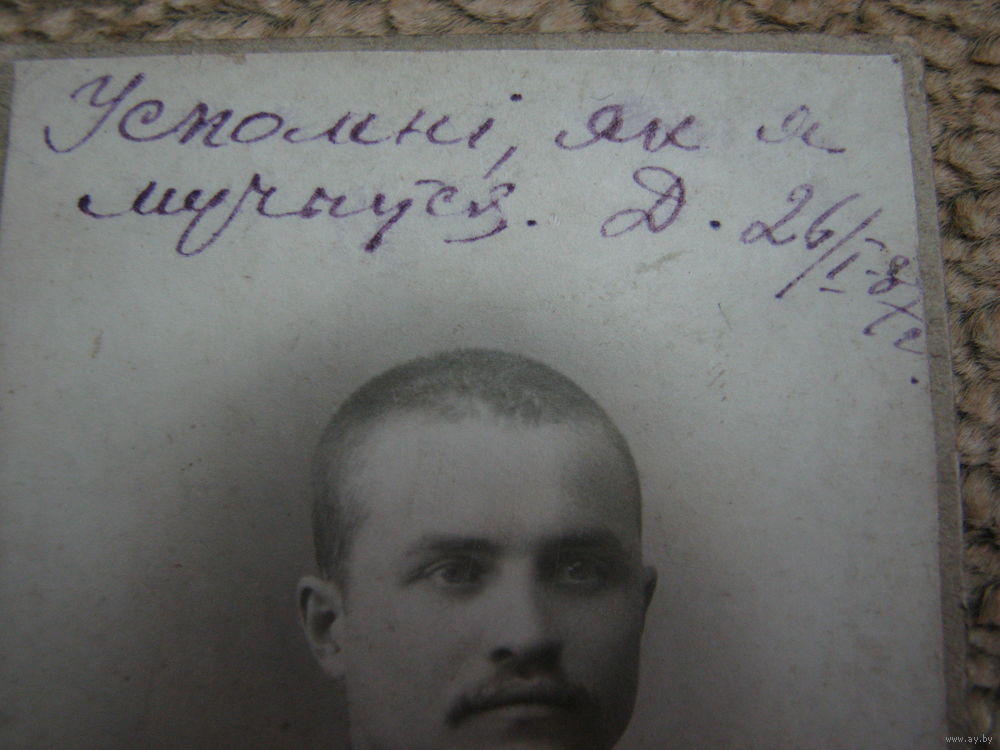 Успомні, як я
мучыўся. Д. 26/I-
www.ay.by